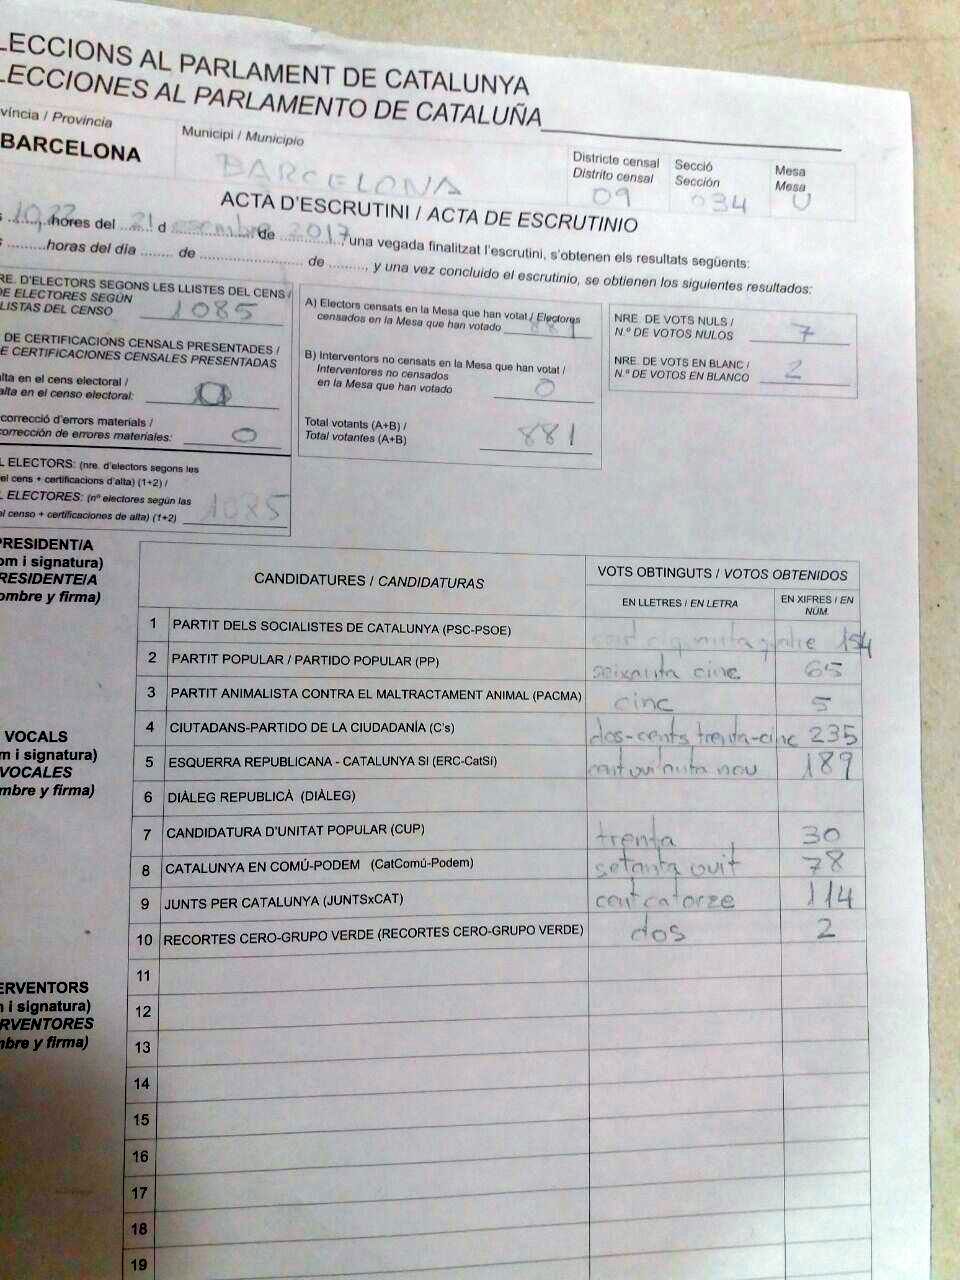 LECCIONS AL PARLAMENT DE CATALUNYA
LECCIONES AL PARLAMENTO DE CATALUÑA
víncia / Provincia
BARCELONA
Municipi / Municipio
BARCELONA
Districte censal
Distrito censal
09
Secció
Sección
034
Mesa
Mesa
U
ACTA D'ESCRUTINI / ACTA DE ESCRUTINIO
s ......... hores del 21 d esembre de 2017 una vegada finalitzat l'escrutini, s'obtenen els resultats següents:
s .........horas del día ........ de ......................... de .........., y una vez concluido el escrutinio, se obtienen los siguientes resultados:
RE. D'ELECTORS SEGONS LES LLISTES DEL CENS /
DE ELECTORES SEGÚN
LISTAS DEL CENSO 1085
DE CERTIFICACIONS CENSALS PRESENTADES /
E CERTIFICACIONES CENSALES PRESENTADAS
alta en el cens electoral /
alta en el censo electoral: 0
correcció d'errors materials /
corrección de errores materiales: 0
L ELECTORS: (nre. d'electors segons les
el cens + certificacions d'alta) (1+2) /
L ELECTORES: (nº electores según las
el censo + certificaciones de alta) (1+2) 1085
A) Electors censats en la Mesa que han votat / Electores
censados en la Mesa que han votado 881
B) Interventors no censats en la Mesa que han votat /
Interventores no censados
en la Mesa que han votado 0
Total votants (A+B) /
Total votantes (A+B) 881
NRE. DE VOTS NULS /
N.º DE VOTOS NULOS 7
NRE. DE VOTS EN BLANC /
N.º DE VOTOS EN BLANCO 2
PRESIDENT/A
om i signatura)
RESIDENTE/A
ombre y firma)
CANDIDATURES / CANDIDATURAS
VOTS OBTINGUTS / VOTOS OBTENIDOS
EN LLETRES / EN LETRA
EN XIFRES / EN
NÚM.
1 PARTIT DELS SOCIALISTES DE CATALUNYA (PSC-PSOE) 154
2 PARTIT POPULAR / PARTIDO POPULAR (PP) seixanta cinc 65
3 PARTIT ANIMALISTA CONTRA EL MALTRACTAMENT ANIMAL (PACMA) cinc 5
4 CIUTADANS-PARTIDO DE LA CIUDADANÍA (C's) dos-cents trenta-cinc 235
5 ESQUERRA REPUBLICANA - CATALUNYA SI (ERC-CatSí) cent vuitanta nou 189
6 DIÀLEG REPUBLICÀ (DIÀLEG)
7 CANDIDATURA D'UNITAT POPULAR (CUP) trenta 30
8 CATALUNYA EN COMÚ-PODEM (CatComú-Podem) setanta vuit 78
9 JUNTS PER CATALUNYA (JUNTSxCAT) cent catorze 114
10 RECORTES CERO-GRUPO VERDE (RECORTES CERO-GRUPO VERDE) dos 2
11
12
13
14
15
16
17
18
19
VOCALS
m i signatura)
VOCALES
mbre y firma)
ERVENTORS
m i signatura)
RVENTORES
mbre y firma)